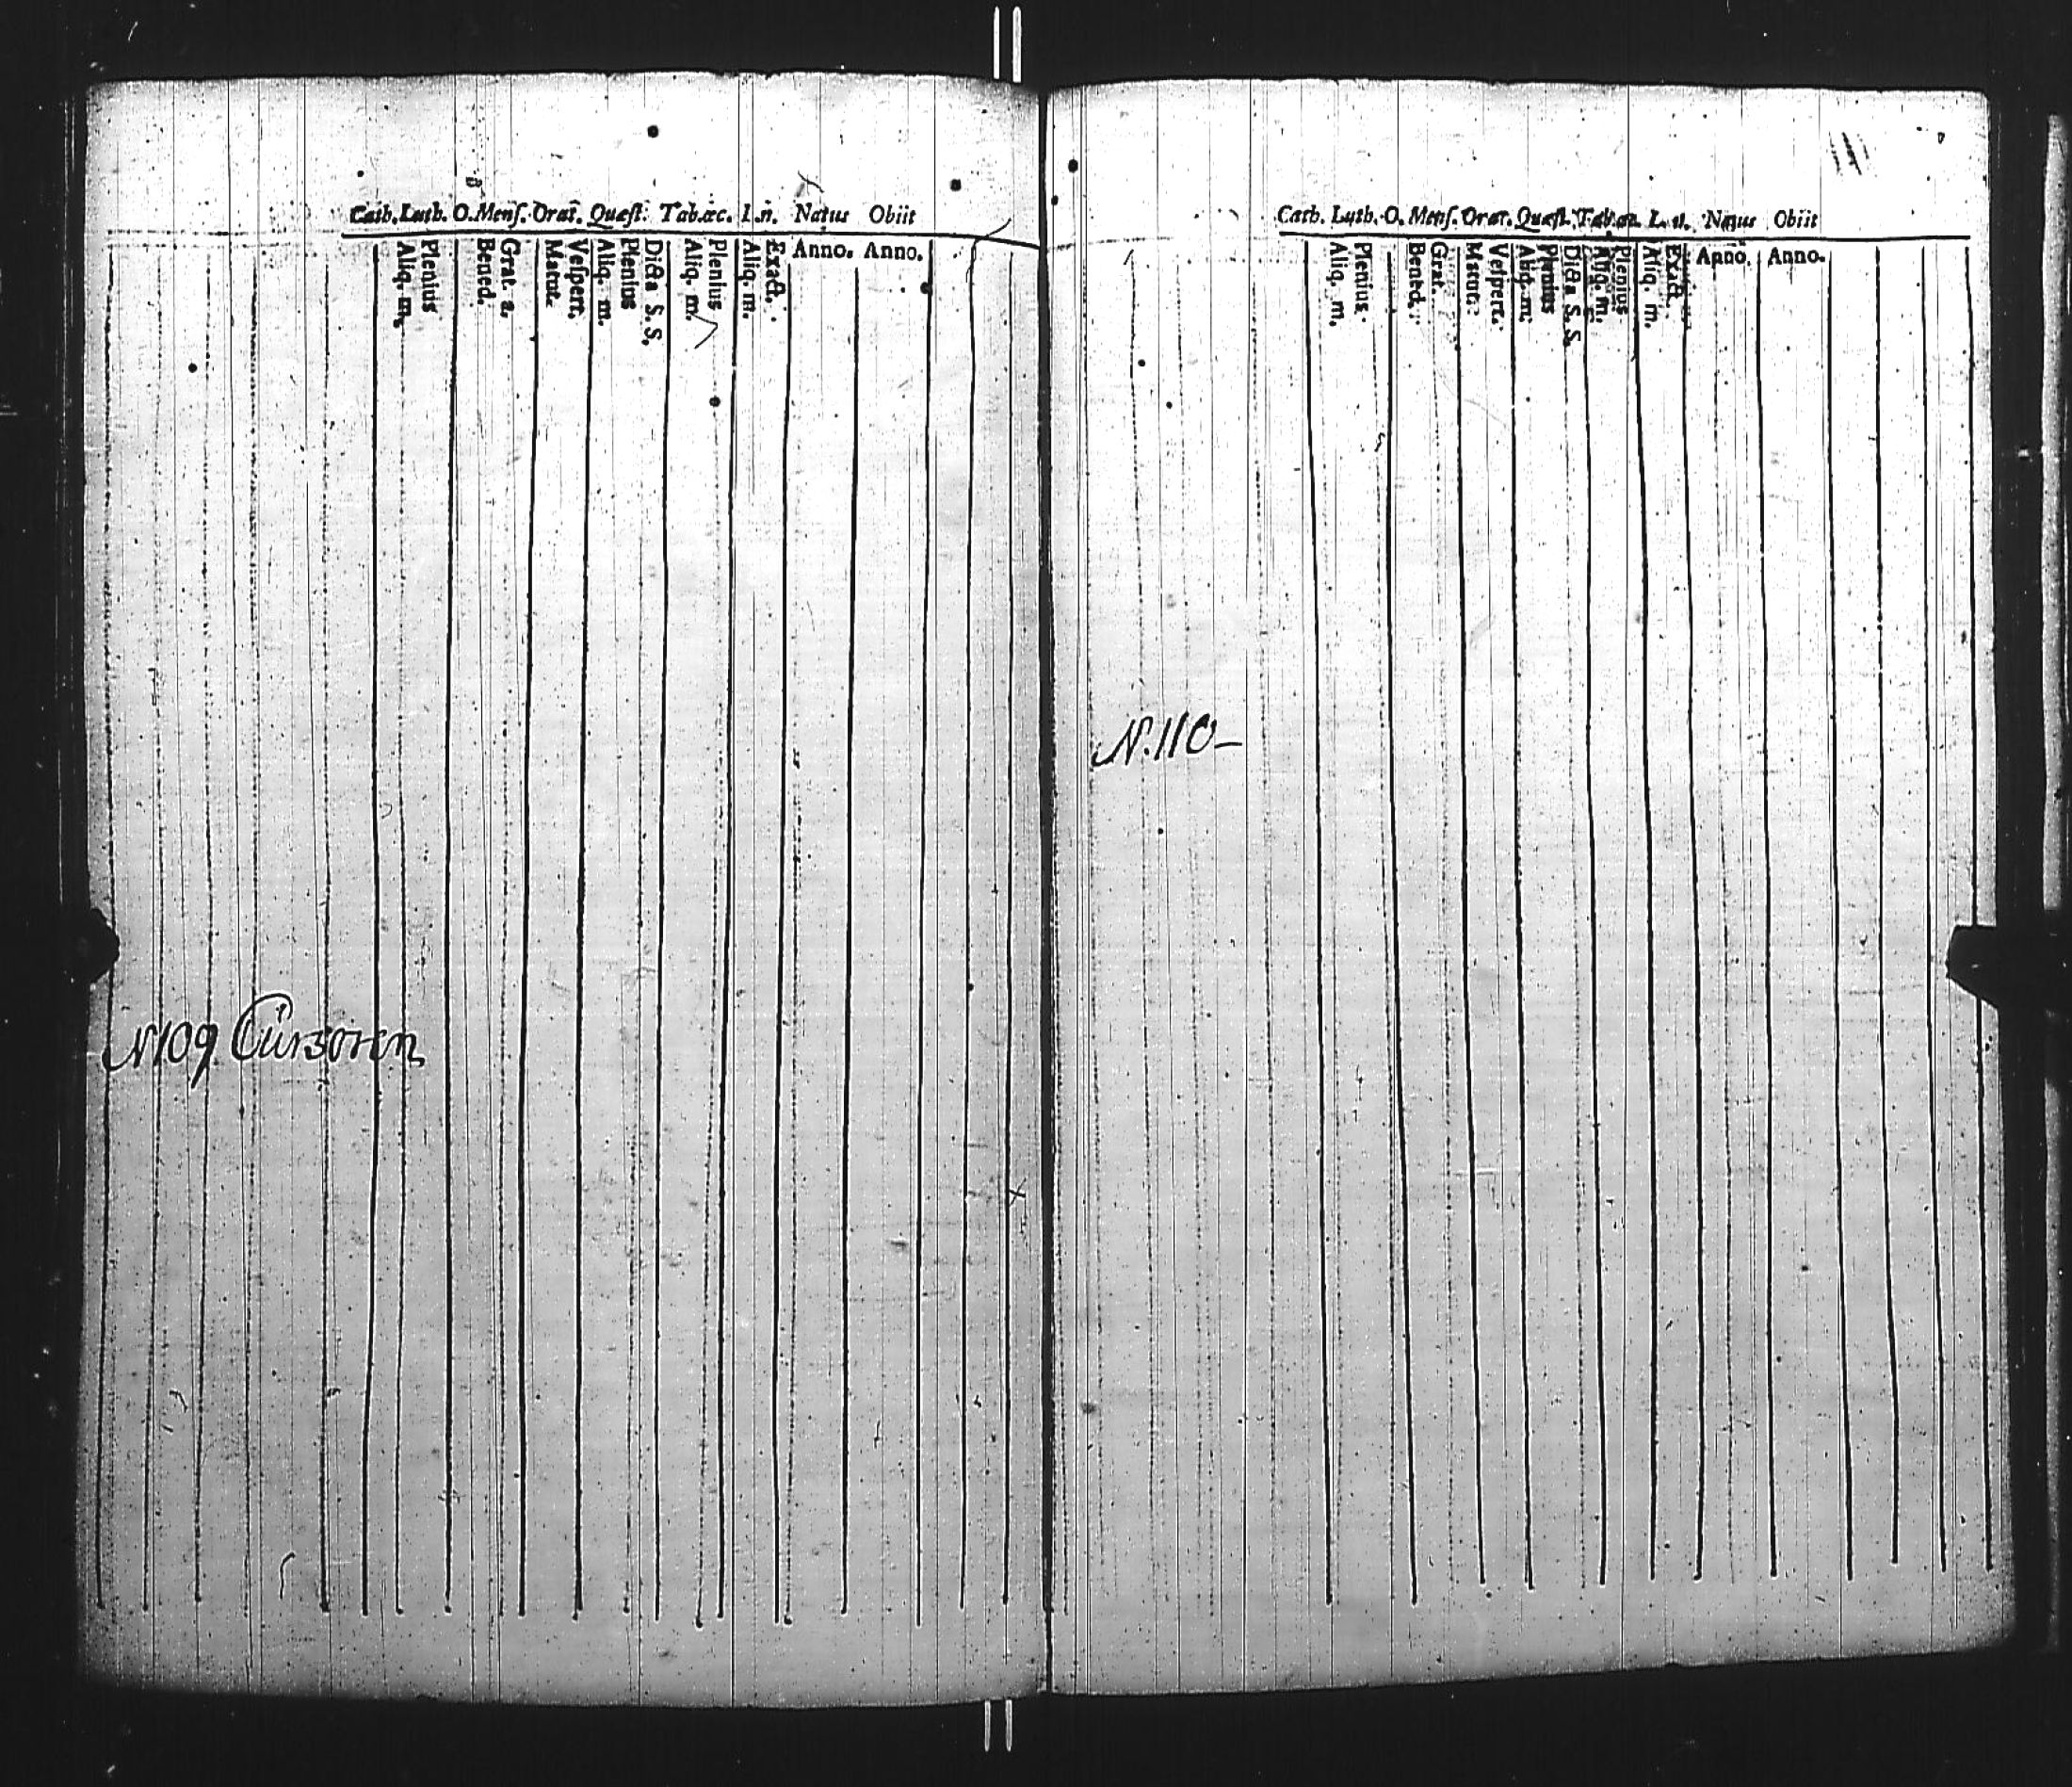 Cath. Luth. O. Menſ. Orat. Quæſt. Tab. æc. L. n. Natus Obiit
Plenius
Aliq. m.
Grat. a.
Bened.
Veſpert.
Matut.
Dicta S. S.
Plenius
Aliq. m.
Plenius
Aliq. m.
Exact.
Aliq. m.
Anno. Anno.
N 109 Cürsoren
Cath. Luth. O. Menſ. Orat. Quæſt. Tab. æc. L. n. Natus Obiit
Plenius
Aliq. m.
Grat.
Bened.
Veſpert.
Matut.
Dicta S. S.
Plenius
Aliq. m.
Plenius
Aliq. m.
Exact.
Aliq. m.
Anno. Anno.
N. 110-